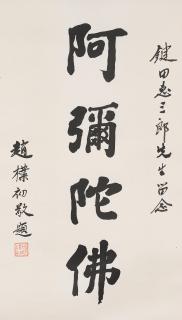 鍵田惠三郎先生留念
阿彌陀佛
趙樸初敬題